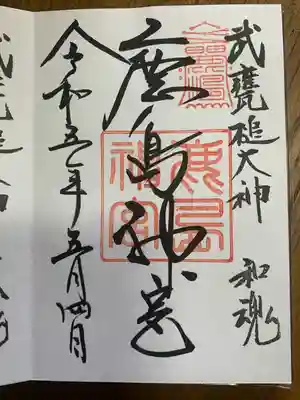 武甕槌大神 和魂
鹿島神宮
鹿島
神宮
令和五年五月四日